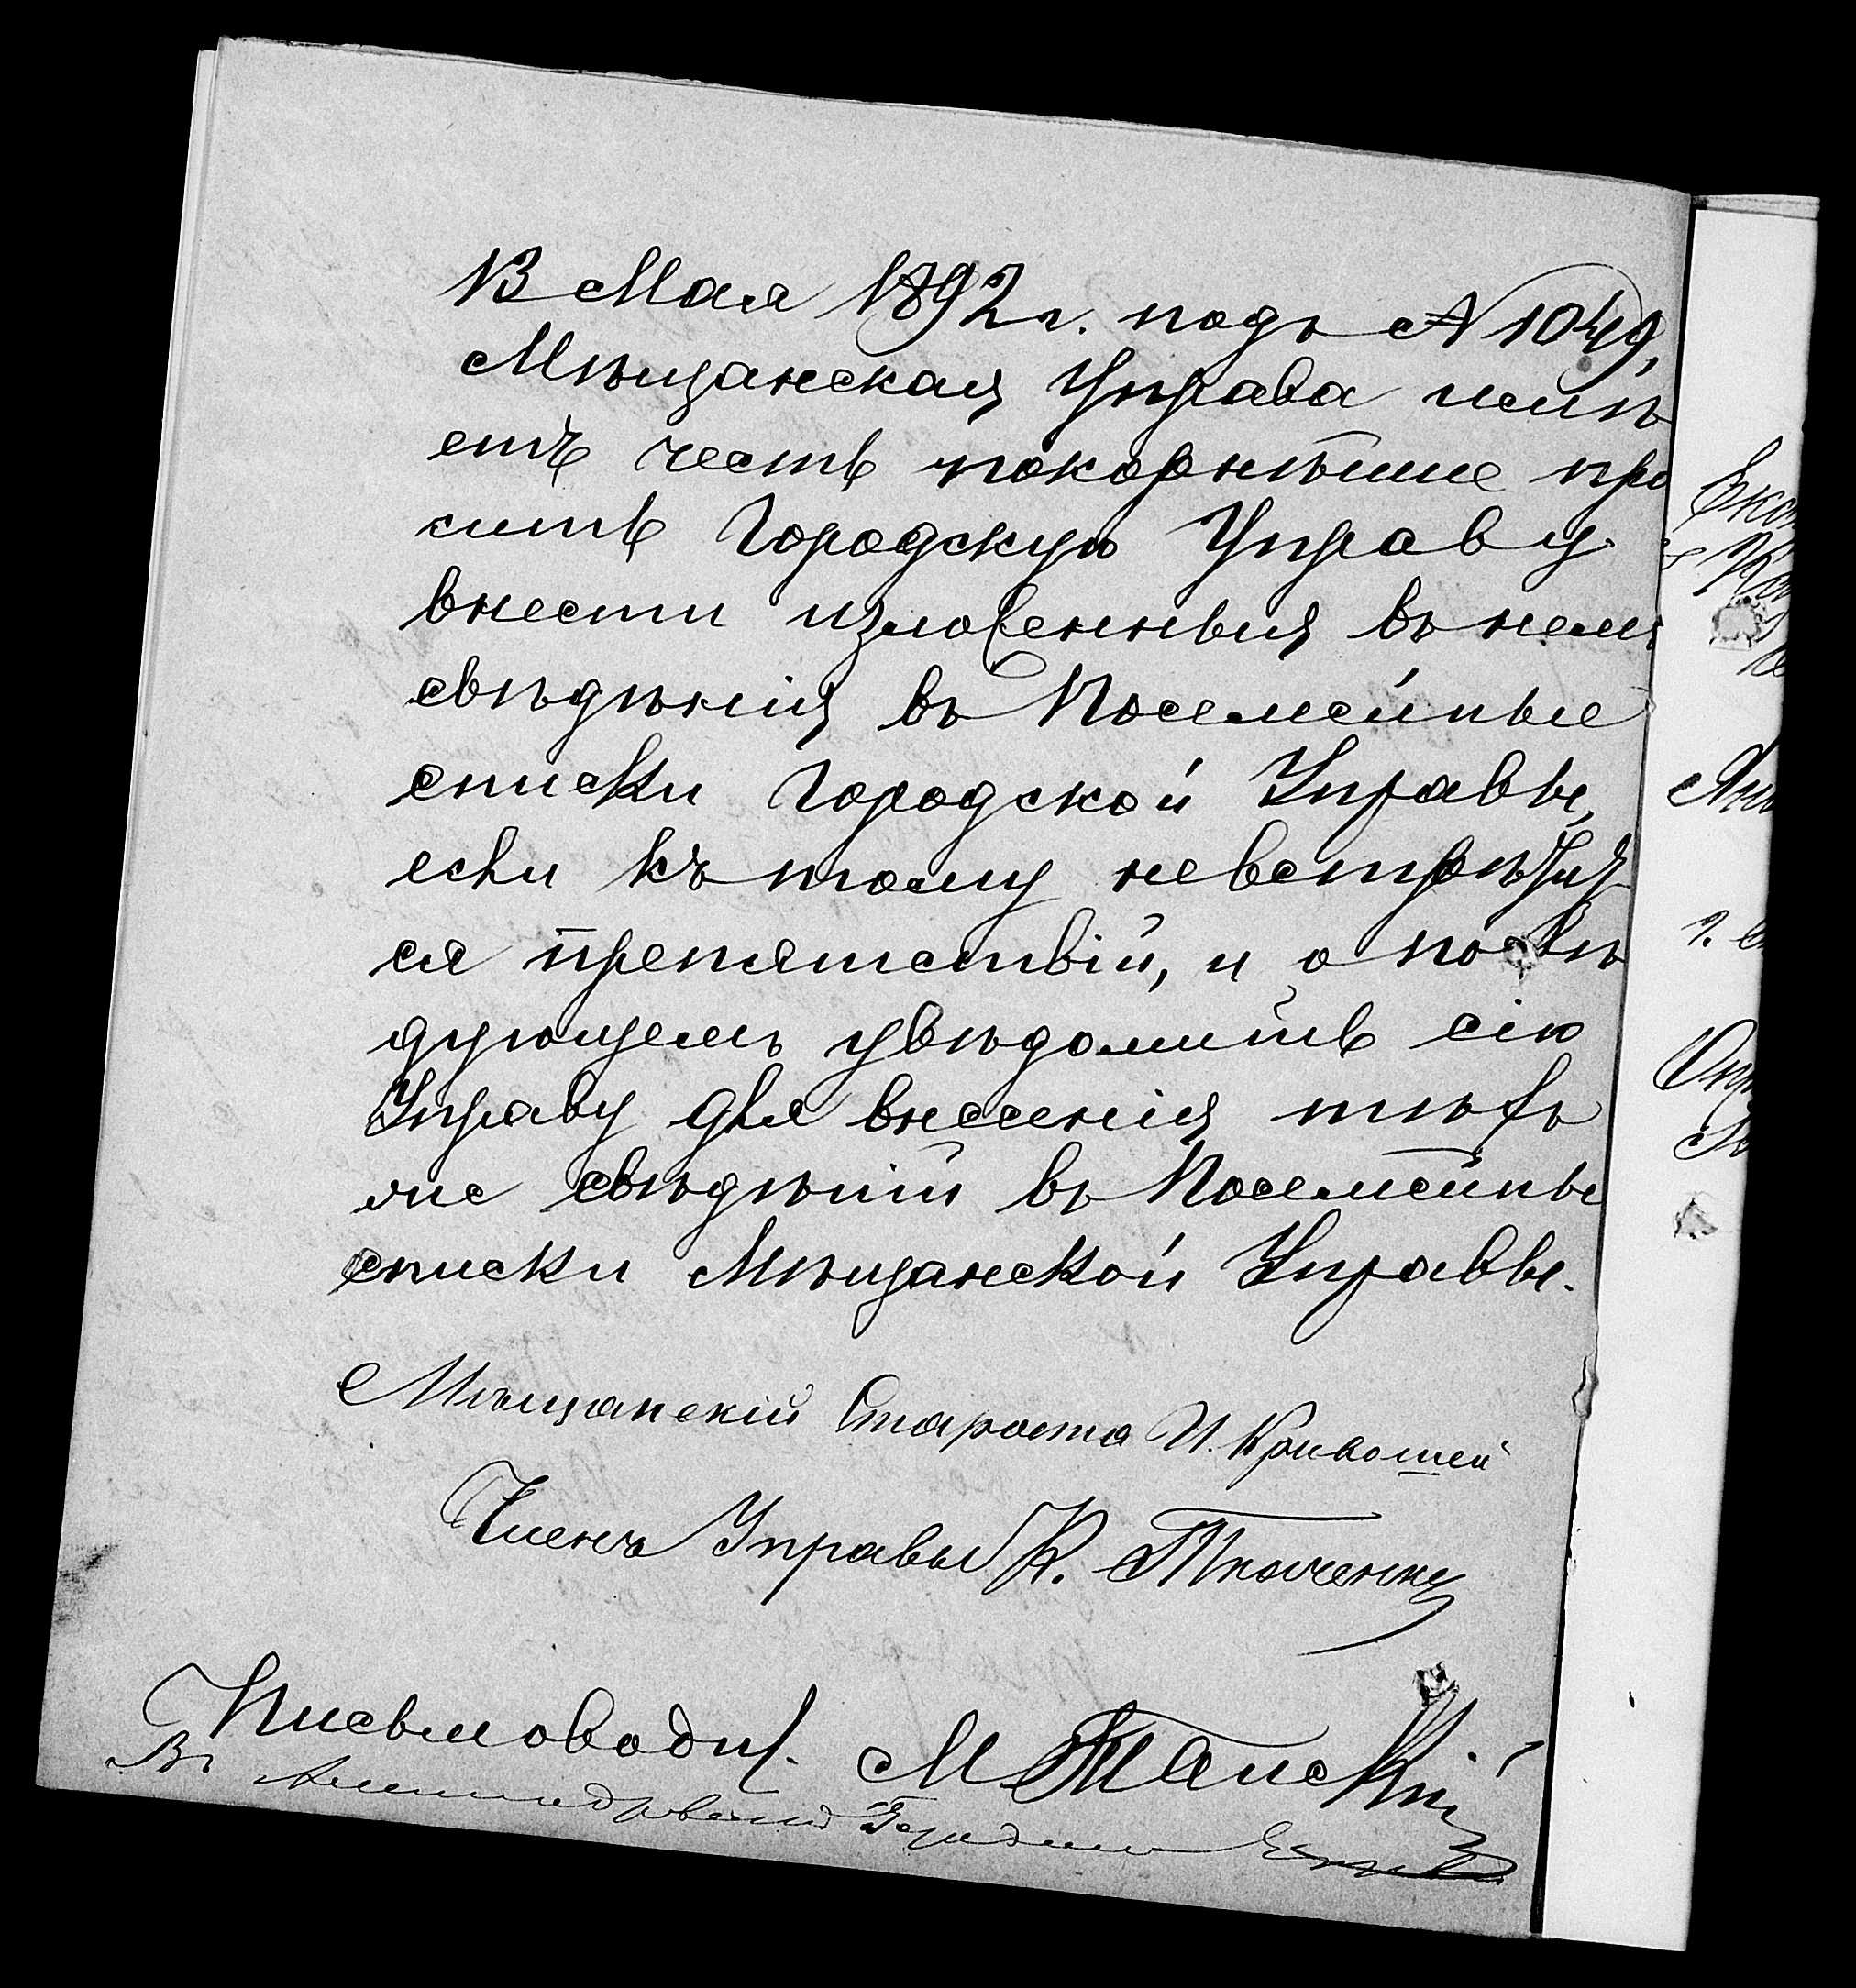 13 Мая 1892 г. подъ № 1049,
Мѣщанская Управа имѣ
етъ честь покорнѣйше про
сить Городскую Управу
внести изложенныя въ немъ
свѣдѣнія въ Посемейные
списки Городской Управы,
если къ тому невстрѣтит
ся препятствій, и о послѣ
дующемъ увѣдомить сію
Управу для внесенія тѣхъ
же свѣдѣній въ Посемейные
списки Мѣщанской Управы.
Мѣщанскій Староста И. Кривошей
Членъ Управы К. Ткаченко
Письмоводит. М Танскій
Въ Александровскую Городскую Управу